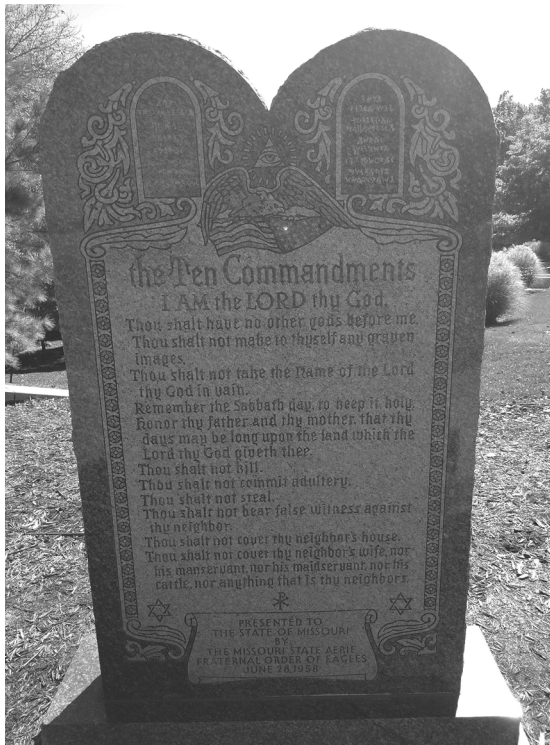 the Ten Commandments
I AM the LORD thy God.
Thou shalt have no other gods before me.
Thou shalt not make to thyself any graven
images.
Thou shalt not take the Name of the Lord
thy God in vain.
Remember the Sabbath day, to keep it holy.
Honor thy father and thy mother, that thy
days may be long upon the land which the
Lord thy God giveth thee.
Thou shalt not kill.
Thou shalt not commit adultery.
Thou shalt not steal.
Thou shalt not bear false witness against
thy neighbor.
Thou shalt not covet thy neighbor's house.
Thou shalt not covet thy neighbor's wife, nor
his manservant, nor his maidservant, nor his
cattle, nor anything that is thy neighbor's.
PRESENTED TO
THE STATE OF MISSOURI
BY
THE MISSOURI STATE AERIE
FRATERNAL ORDER OF EAGLES
JUNE 28, 1958